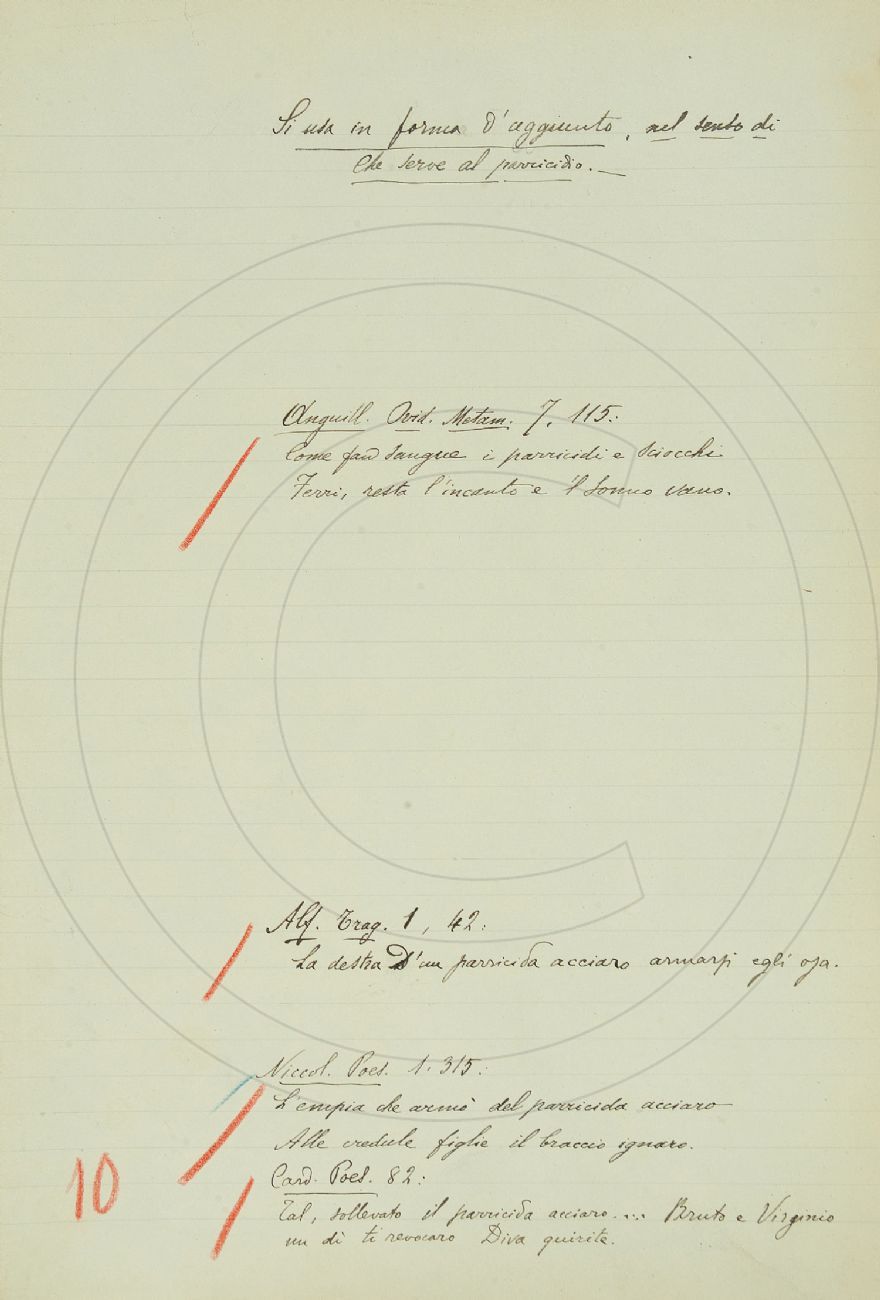 Si usa in forma d'aggiunto, nel senso di
Che serve al parricidio.—
Anguill. Ovid. Metam. 7. 115:
Come fan sangue i parricidi e sciocchi
Ferri, resta l'incanto e il sonno vano.
Alf. Trag. 1, 42:
La destra D'un parricida acciaro armarsi egli osa.
Niccol. Poes. 1. 315:
L'empia che armò del parricida acciaro
Alle credule figlie il braccio ignaro.
10
Card. Poes. 82:
Tal, sollevato il parricida acciaro.... Bruto e Virginio
un dì ti revocaro Diva quirite.